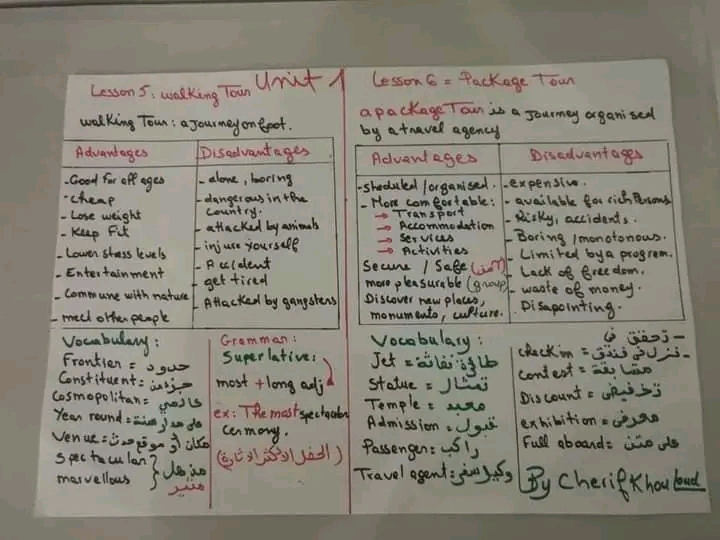 Unit 1
Lesson 5: walking Tour
walking Tour: a journey on foot.
Advantages
- Good for all ages
- cheap
- Lose weight
- Keep Fit
- Lower stress levels
- Entertainment
- Commune with nature
- meet other people
Disadvantages
- alone, boring
- dangerous in the
country.
- attacked by animals
- injure yourself
- Accident
- get tired
- Attacked by gangsters
Vocabulary:
Frontier = حدود
Constituent = جزء من
Cosmopolitan = عالمي
Year round = على مدار سنة
Venue = مكان أو موقع حدث
Spectacular
marvellous } مذهل
مثير
Grammar:
Superlative:
most + long adj
ex: The most spectacular
cermony.
(الحفل الأكثر إثارة)
Lesson 6 = Package Tour
a package Tour is a journey organised
by a travel agency
Advantages
- sheduled / organised.
- More comfortable:
→ Transport
→ Accommodation
→ Services
→ Activities
Secure / Safe (آمن)
more pleasurable (group)
Discover new places,
monuments, culture.
Disadvantages
- expensive.
- available for rich Persons
- Risky, accidents.
- Boring / monotonous.
- Limited by a program.
- Lack of freedom.
- waste of money.
- Disapointing.
Vocabulary:
Jet = طائرة نفاثة
Statue = تمثال
Temple = معبد
Admission = قبول
Passenger = راكب
Travel agent: وكيل سفر
check in = نزل في فندق -
contest = مسابقة
Discount = تخفيض
exhibition = معرض
Full aboard = على متن
By Cherif Khouloud